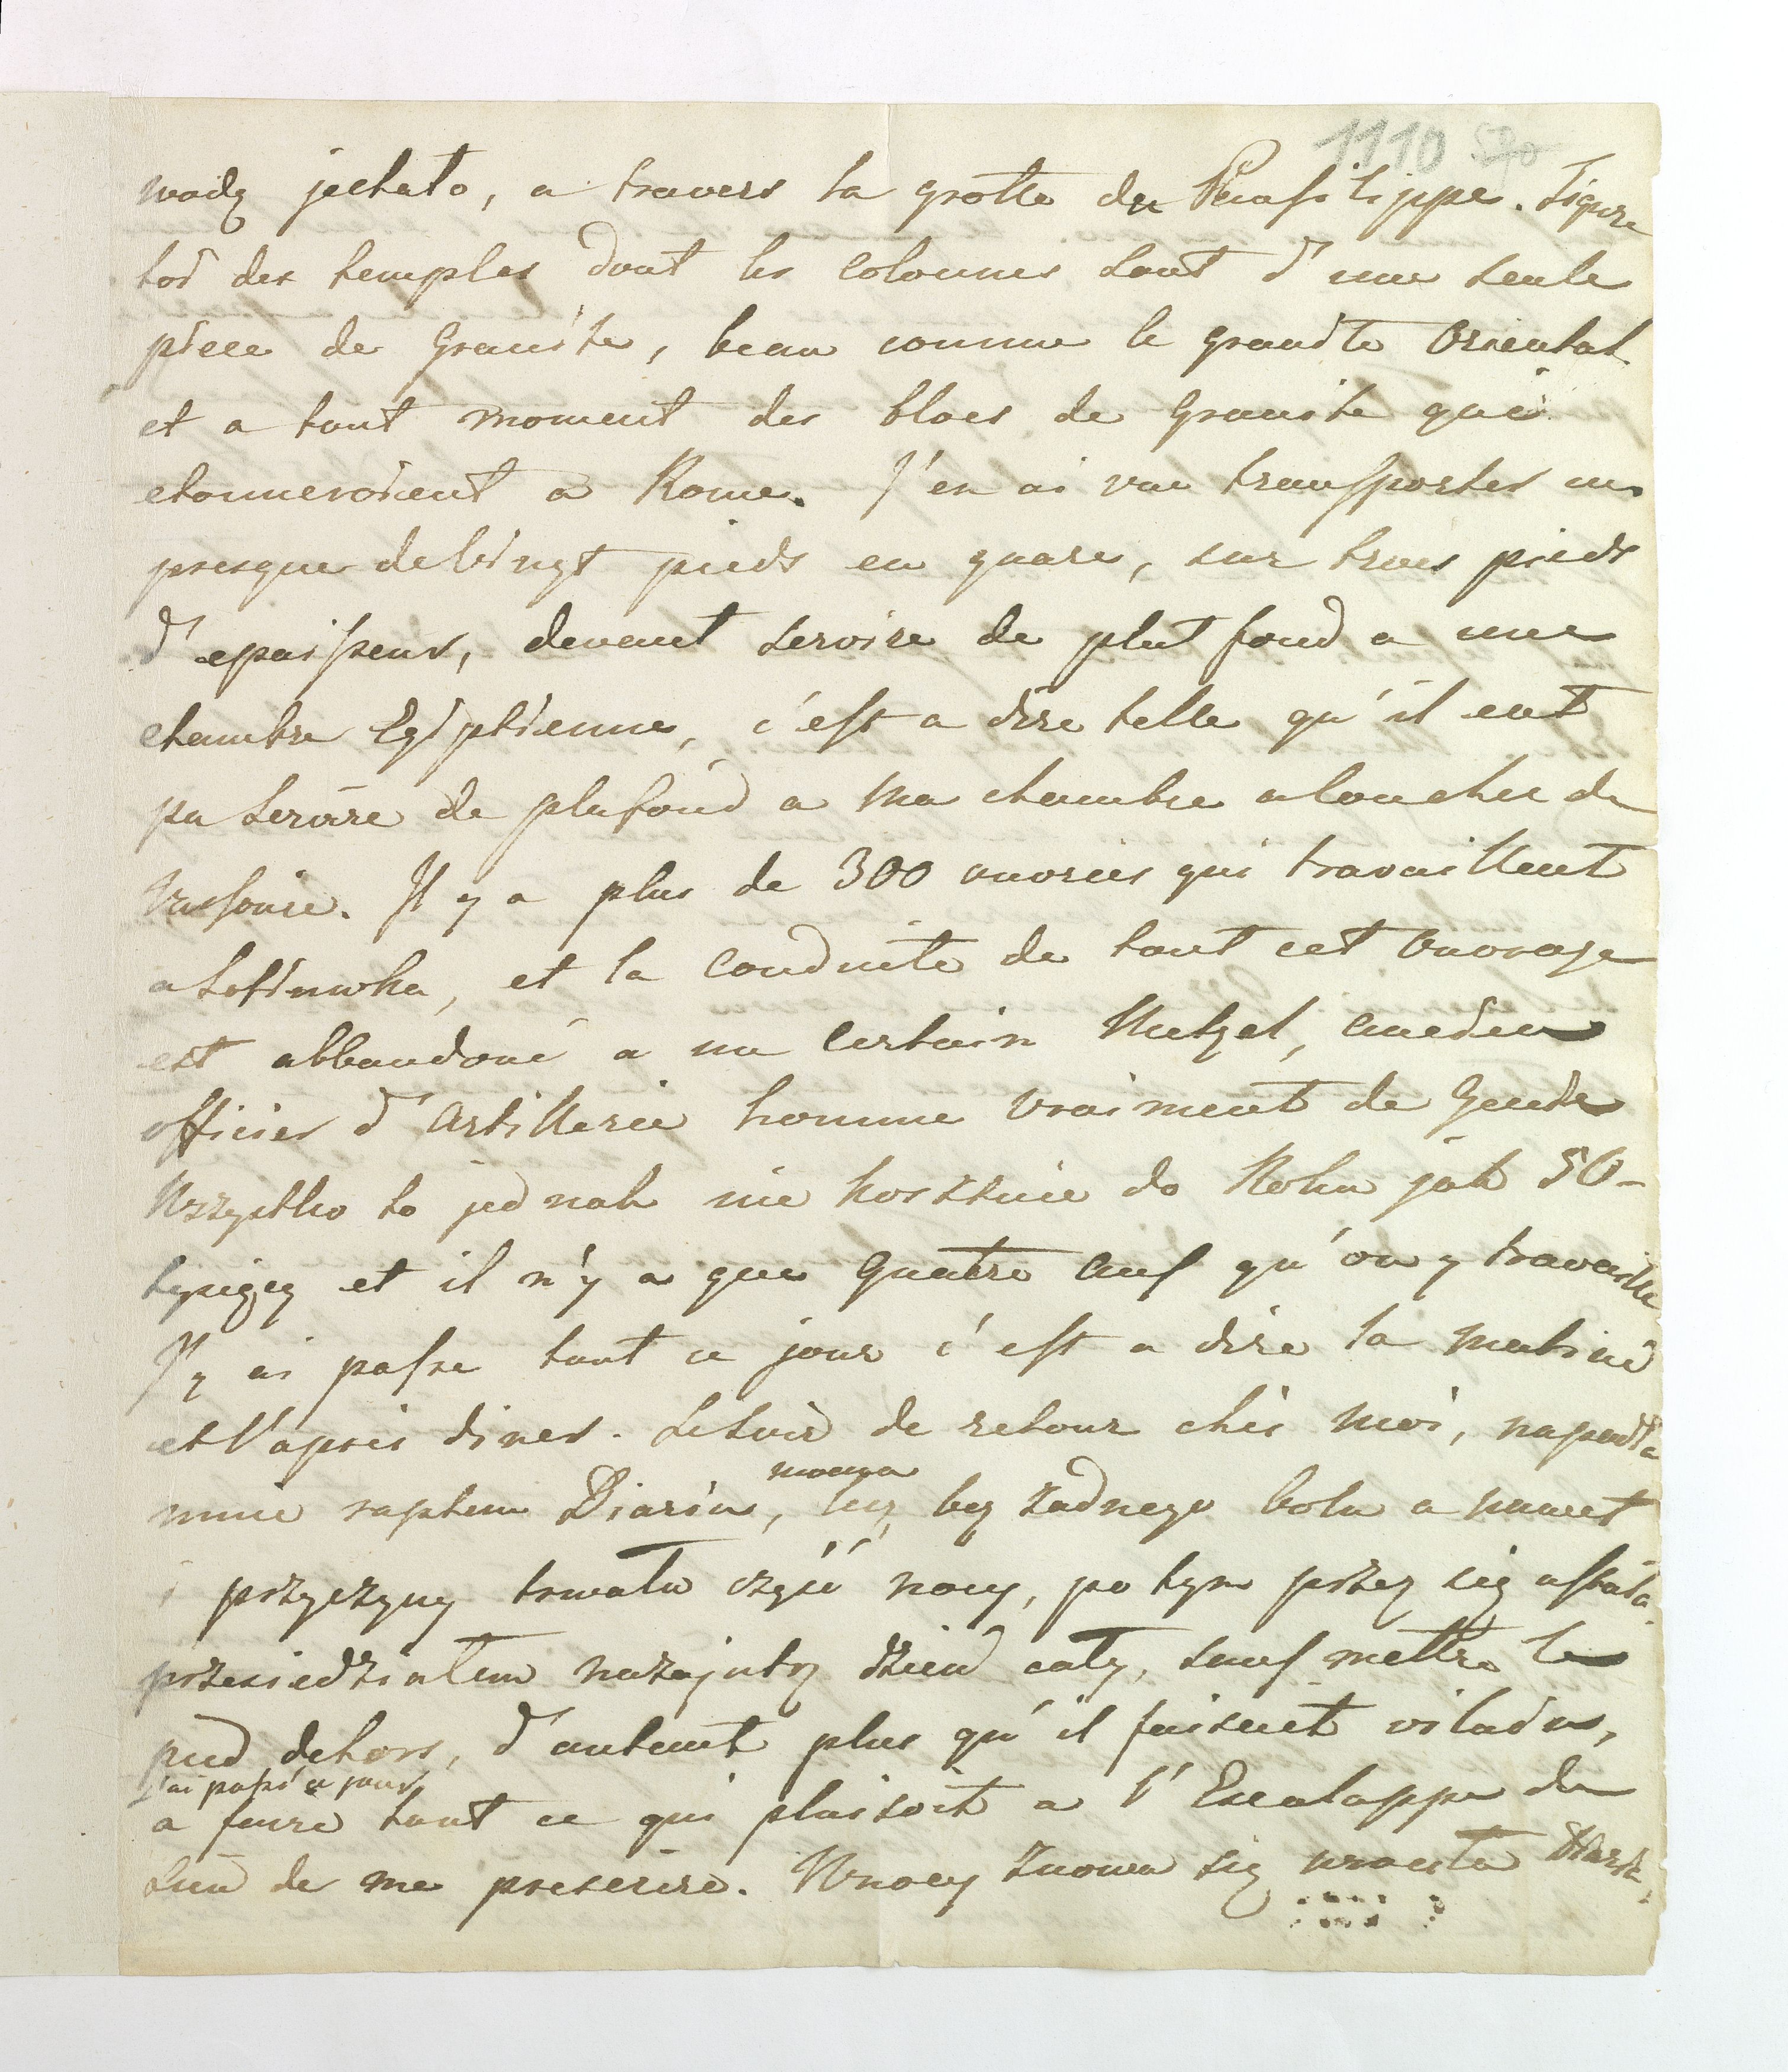 1110 520
wodą jechało, a travers la grotte du Pausilippe. Figure
toi des temples dont les colonnes sont d'une seule
piece de Granite, beau comme le granite Oriental
et a tout moment des blocs de Granite qui
etonneroient a Rome. J'en ai vue transporter un
presque de vingt pieds en quare, sur trois pieds
d'epaisseur, devant servire de plat fond a une
chambre Egiptienne, c'est a dire telle qu'il eut
pu servire de plafond a ma chambre a coucher de
Varsovie. Il y a plus de 300 ouvriers qui travaillent
a Sofinwka, et la conduite de tout cet ouvrage
est abbandoné a un certain Metzel, ancien
officier d'Artillerie homme vraiment de Genie
Wszystko to jednak nie kosztuie do Roku jak 50-
tysięcy et il n'y a que quatre ans qu'on y travaille
J'y ai passe tout ce jour c'est a dire la matiné
et l'après diner. Le soir de retour chés moi, napadła
mnie raptem Diaria, mocna lecz bez żadnego bolu a nawet
i przyczyny trwała część nocy, po tym przez się ustała
przesiedziałem nazajutrz dzień cały, sans mettre le
pied dehors, d'autant plus qu'il faisoit vilain,
j'ai passé ce jour
a faire tout ce qui plaisoit a l'Esculappe du
lieu de me prescrire. W nocy znowu się wrociła